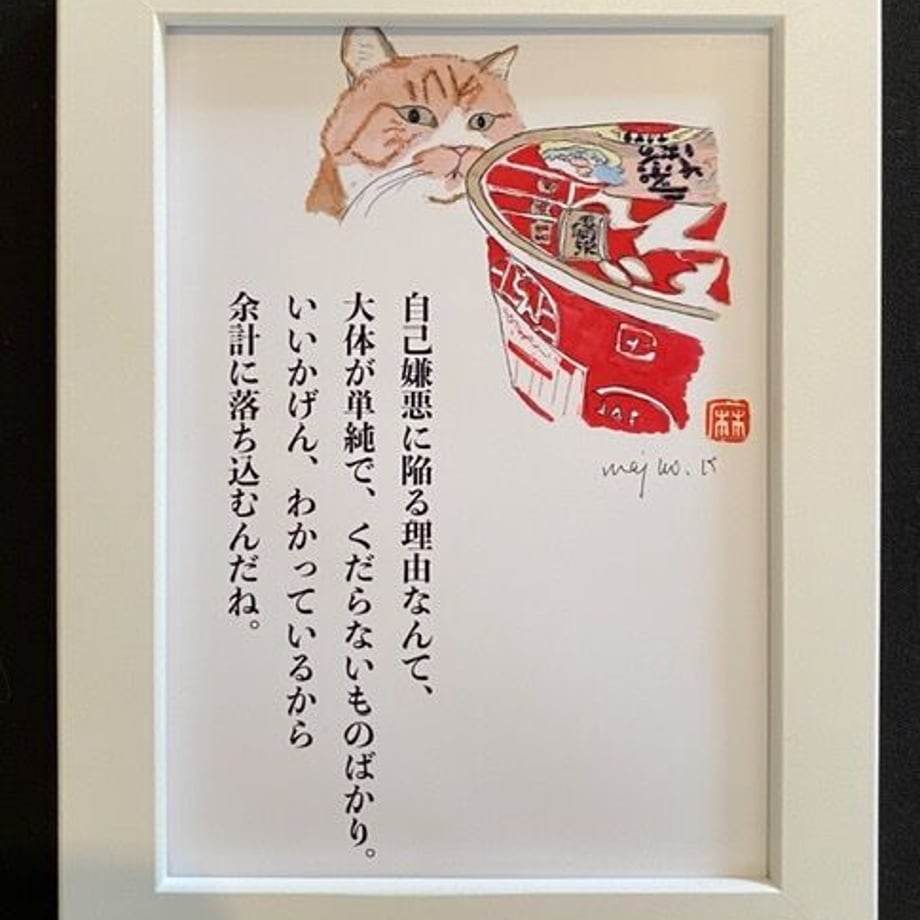 自己嫌悪に陥る理由なんて、
大体が単純で、くだらないものばかり。
いいかげん、わかっているから
余計に落ち込むんだね。
林